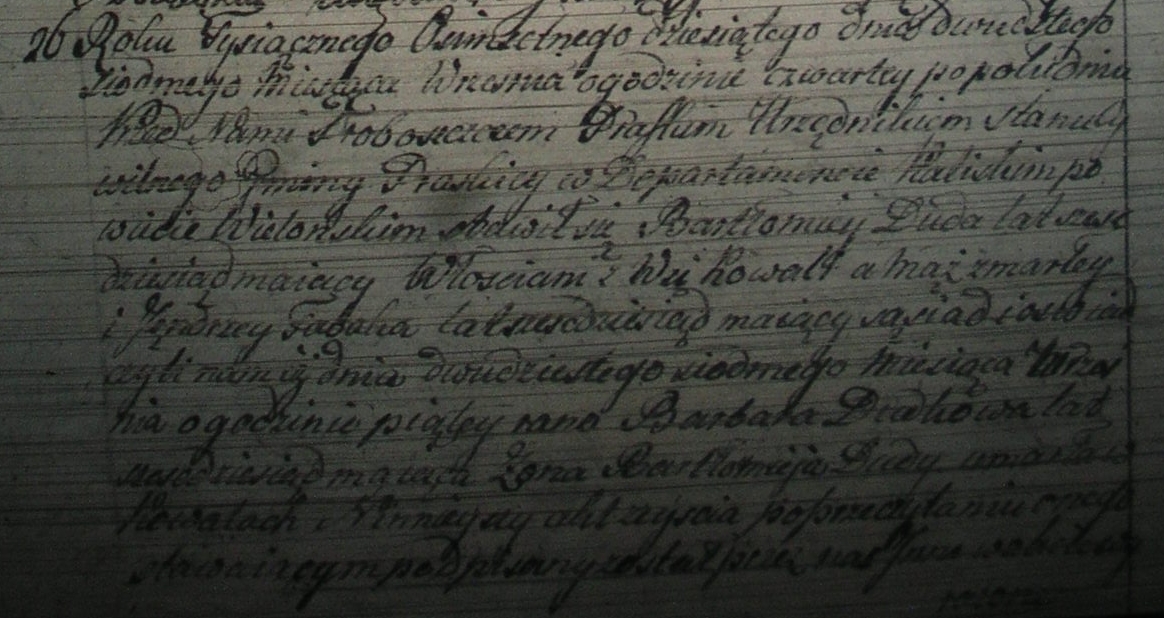 26 Roku Tysiącznego Osimsetnego dziesiątego dnia dwudziestego
siodmego Miesiąca Wrzesnia o godzinie czwartey po poludniu
Przed Nami Proboszczem Praskim Urzędnikiem stanu Cy
wilnego Gminy Praskiey w Departamencie Kaliskim po
wiecie Wielonskim stawił się Bartłomiey Duda lat szesc
dziesiąd maiący Włoscianin z Wsi Kowali a Mąż zmarłey
i Jędrzey lat szescdziesiąd maiący sąsiad i oswiad
czyli nam iż dnia dwudziestego siodmego Miesiąca Wrzes
nia o godzinie piątey rano Barbara Dudkowa lat
szescdziesiąd maiąca Żona Bartłomieja Dudy umarła w
Kowalach Ninieyszy akt zyscia po przeczytaniu onego
stawaiącym podpisany został przez nas